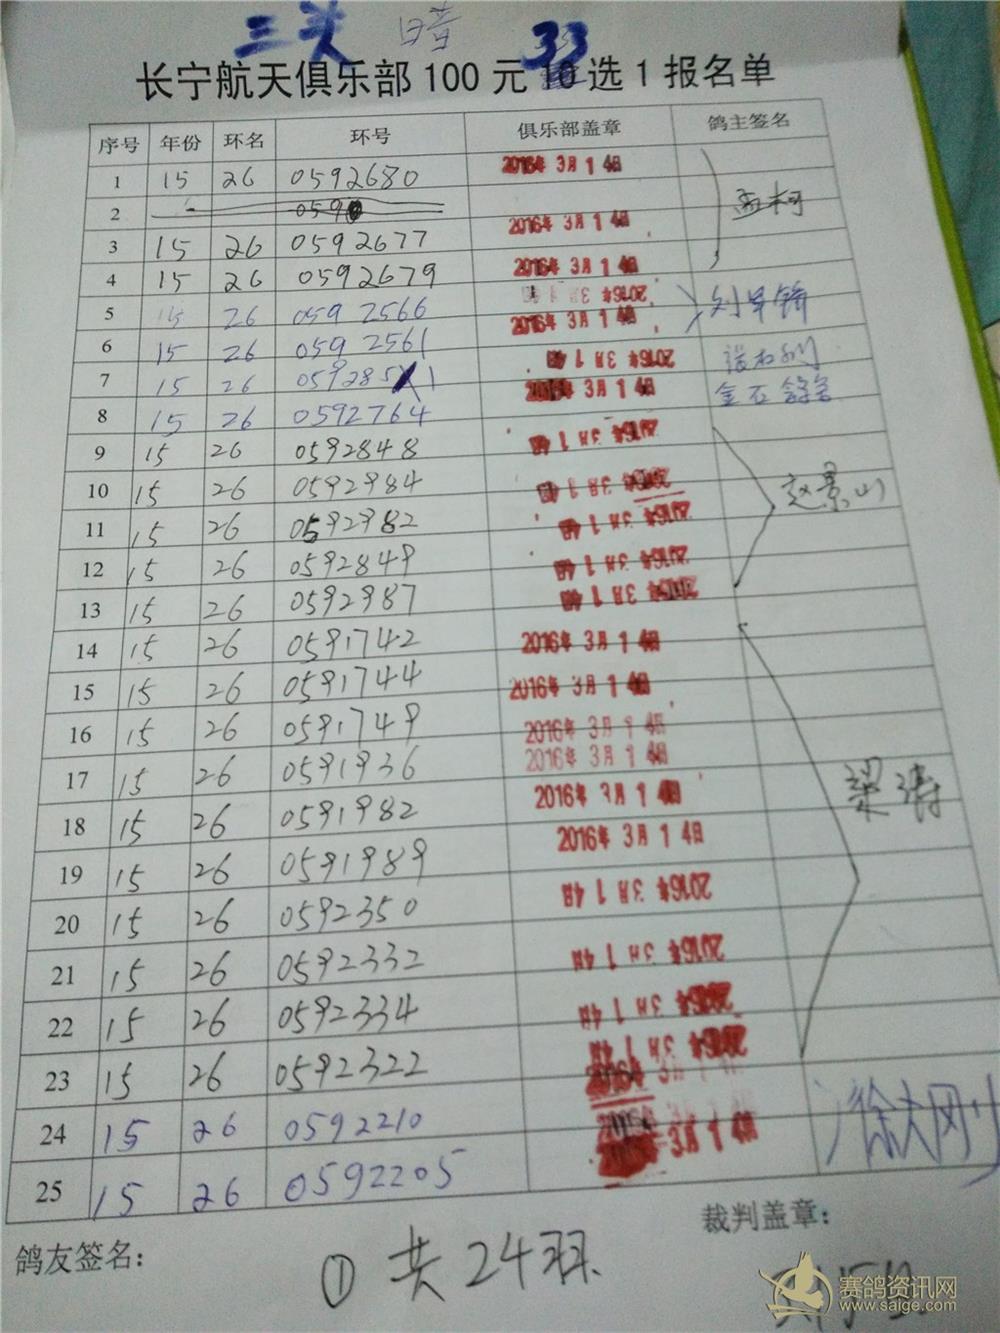 三关 暗 33
长宁航天俱乐部100元10选1报名单
序号 年份 环名 环号 俱乐部盖章 鸽主签名
1 15 26 0592680 2016年3月14日
2 059
3 15 26 0592677 2016年3月14日
4 15 26 0592679 2016年3月14日
5 15 26 0592566 2016年3月14日
6 15 26 0592561 2016年3月14日
7 15 26 059285 1 2016年3月14日
8 15 26 0592764 2016年3月14日 金石鸽舍
9 15 26 0592848 2016年3月14日
10 15 26 0592984 2016年3月14日 赵景山
11 15 26 0592982 2016年3月14日
12 15 26 0592849 2016年3月14日
13 15 26 0592987 2016年3月14日
14 15 26 0591742 2016年3月14日
15 15 26 0591744 2016年3月14日
16 15 26 0591749 2016年3月14日
17 15 26 0591936 2016年3月14日 梁涛
18 15 26 0591982 2016年3月14日
19 15 26 0591989 2016年3月14日
20 15 26 0592350 2016年3月14日
21 15 26 0592332 2016年3月14日
22 15 26 0592334 2016年3月14日
23 15 26 0592322 2016年3月14日
24 15 26 0592210 徐大刚
25 15 26 0592205 3月14日
鸽友签名： ① 共24羽 裁判盖章：
赛鸽资讯网
www.saige.com